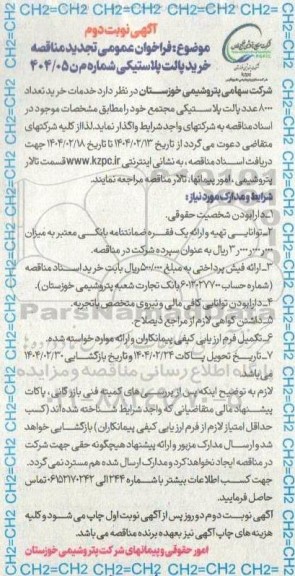 آگهی نوبت دوم
موضوع: فراخوان عمومی تجدید مناقصه
خرید پالت پلاستیکی شماره م ن ۴۰۴/۰۵
شرکت سهامی پتروشیمی خوزستان در نظر دارد خدمات خرید تعداد
۸۰۰۰ عدد پالت پلاستیکی مجتمع خود را مطابق مشخصات موجود در
اسناد مناقصه به شرکتهای واجد شرایط واگذار نماید. لذا از کلیه شرکتهای
متقاضی دعوت می گردد از تاریخ ۱۴۰۴/۰۲/۱۳ تا تاریخ ۱۴۰۴/۰۲/۱۸ جهت
دریافت اسناد مناقصه، به نشانی اینترنتی www.kzpc.ir قسمت تالار
پتروشیمی، امور پیمانها، تالار مناقصه مراجعه نمایند.
شرایط و مدارک مورد نیاز:
۱ـ دارا بودن شخصیت حقوقی.
۲ـ توانایی تهیه و ارائه یک فقره ضمانتنامه بانکی معتبر به میزان
ریال به عنوان سپرده شرکت در مناقصه.
۳ـ ارائه فیش پرداختی به مبلغ ریال بابت خرید اسناد مناقصه
(شماره حساب بانک تجارت شعبه پتروشیمی خوزستان).
۴ـ دارا بودن توانایی کافی مالی و نیروی متخصص با تجربه.
۵ـ داشتن گواهی لازم از مراجع ذیصلاح.
۶ـ تکمیل فرم ارزیابی کیفی پیمانکاران و ارائه موارد خواسته شده.
۷ـ تاریخ تحویل پاکات ۱۴۰۴/۰۲/۲۴ و تاریخ بازگشایی ۱۴۰۴/۰۲/۳۰
می باشد.
لازم به توضیح اینکه پس از بررسی های کمیته فنی بازرگانی، پاکات
پیشنهاد مالی متقاضیانی که واجد شرایط شناخته شده اند (کسب
حداقل امتیاز لازم از فرم ارزیابی کیفی پیمانکاران) بازگشایی خواهد
شد و ارسال مدارک مزبور و ارائه پیشنهاد هیچگونه حقی جهت شرکت
در مناقصه ایجاد نخواهد کرد و مدارک ارسال شده هم مسترد نمی گردد.
جهت کسب اطلاعات بیشتر با شماره ۱۲۴۴ الی ۰۶۱۵۲۱۷۰۲۴۲ تماس
حاصل فرمایید.
آگهی نوبت دوم دو روز پس از آگهی نوبت اول چاپ می شود و کلیه
هزینه های چاپ آگهی نیز بعهده برنده مناقصه می باشد.
امور حقوقی و پیمانهای شرکت پتروشیمی خوزستان